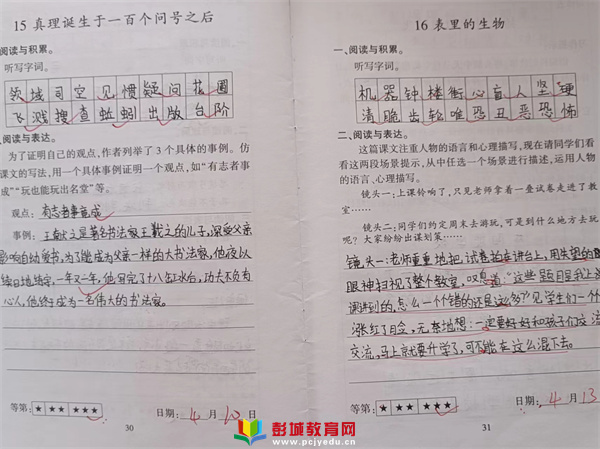 15 真理诞生于一百个问号之后
一、阅读与积累。
听写字词。
领域 司空见惯 疑问 花圃
飞溅 搜查 蚯蚓 出版 台阶
二、阅读与表达。
为了证明自己的观点,作者列举了3个具体的事例。仿
课文的写法,用一个具体事例证明一个观点,如“有志者事
成”“玩也能玩出名堂”等。
观点:有志者事竟成
事例:王献之是著名书法家王羲之的儿子,深受父亲
影响自幼学书,为了能成为父亲一样的大书法家,他夜以
继日地练字,一年又一年,他写完了十八缸水台,功夫不负有
心人,他终于成为一名伟大的书法家。
等第:★ ★★ ★★★
日期:4月10日
30
16 表里的生物
一、阅读与积累。
听写字词。
机器 钟楼 衔心 盲人 坚硬
清脆 齿轮 唯恐 丑恶 恐怖
二、阅读与表达。
这篇课文注重人物的语言和心理描写,现在请同学们看
看这两段场景提示,从中任选一个场景进行描述,运用人物
的语言、心理描写。
镜头一:上课铃响了,只见老师拿着一叠试卷走进了教
室……
镜头二:同学们约定周末去游玩,可是到什么地方去玩
呢?大家纷纷出谋划策……
镜头一:老师重重地把试卷拍在讲台上,用失望的
眼神扫视了整个教室,叹息道:“这些题目是我上
调讲到的,怎么一个个错的还是这么多?”见学生们一个
涨红了脸,无奈地想:一定要好好和孩子们交流
交流,马上就要升学了,可不能在这么混下去。
等第:★ ★★ ★★★
日期:4月13
31
彭城教育网
www.pcjyedu.cn